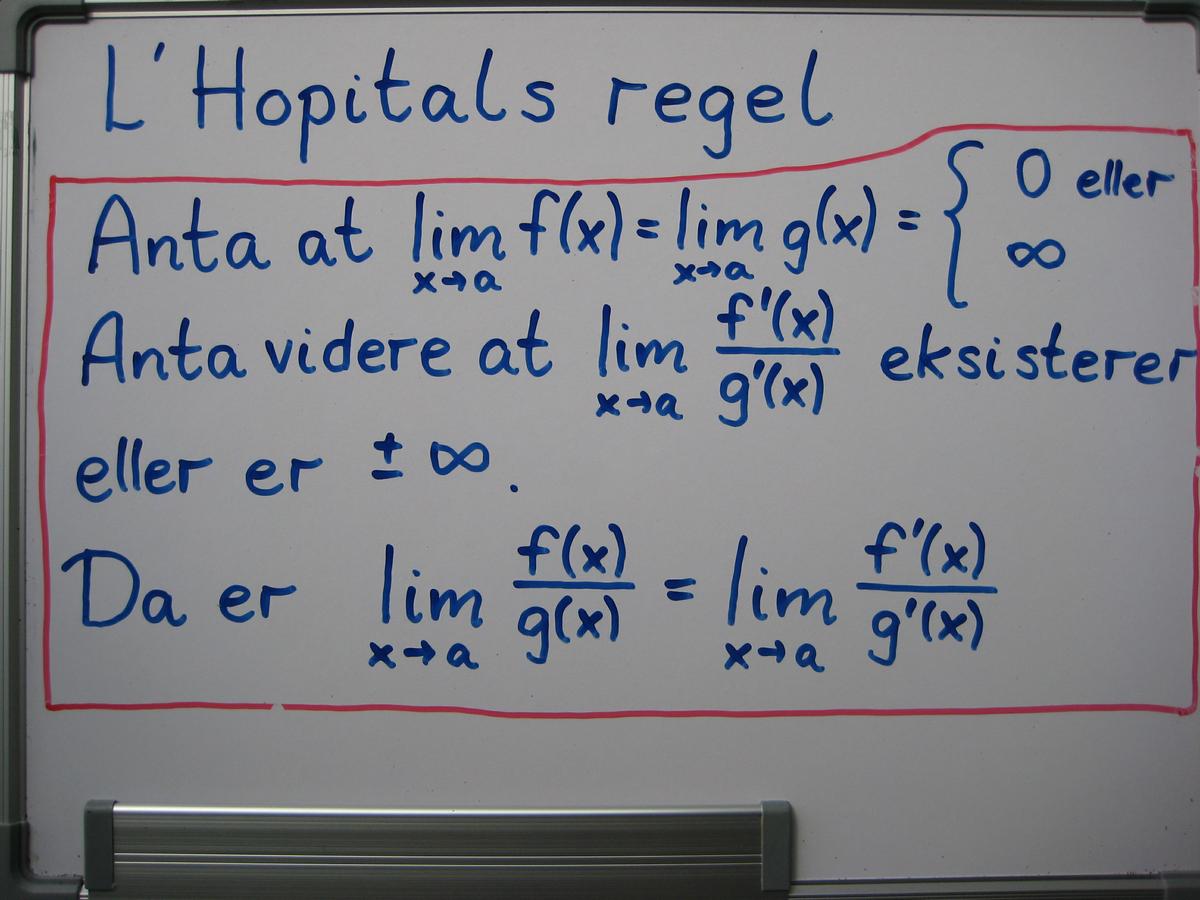 L'Hopitals regel
Anta at lim x→a f(x) = lim x→a g(x) = { 0 eller ∞
Anta videre at lim x→a f'(x)/g'(x) eksisterer
eller er ± ∞.
Da er lim x→a f(x)/g(x) = lim x→a f'(x)/g'(x)